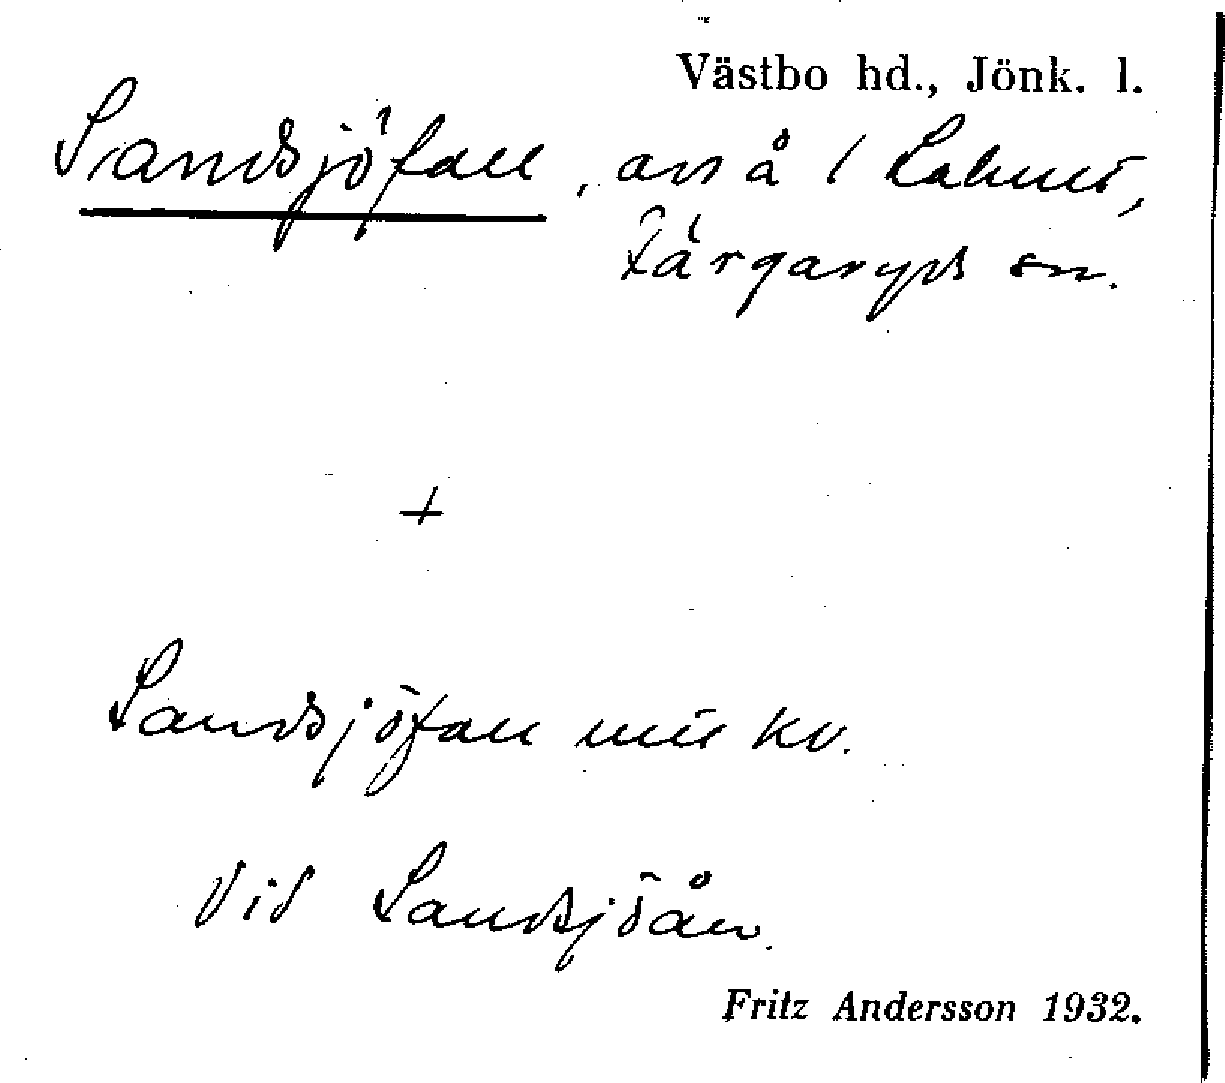 Västbo hd., Jönk. l.
Sandsjöfall, avs å i Lahult,
Färgaryds sn.
+
Sandsjöfall kv.
Vid Sandsjöån.
Fritz Andersson 1932.